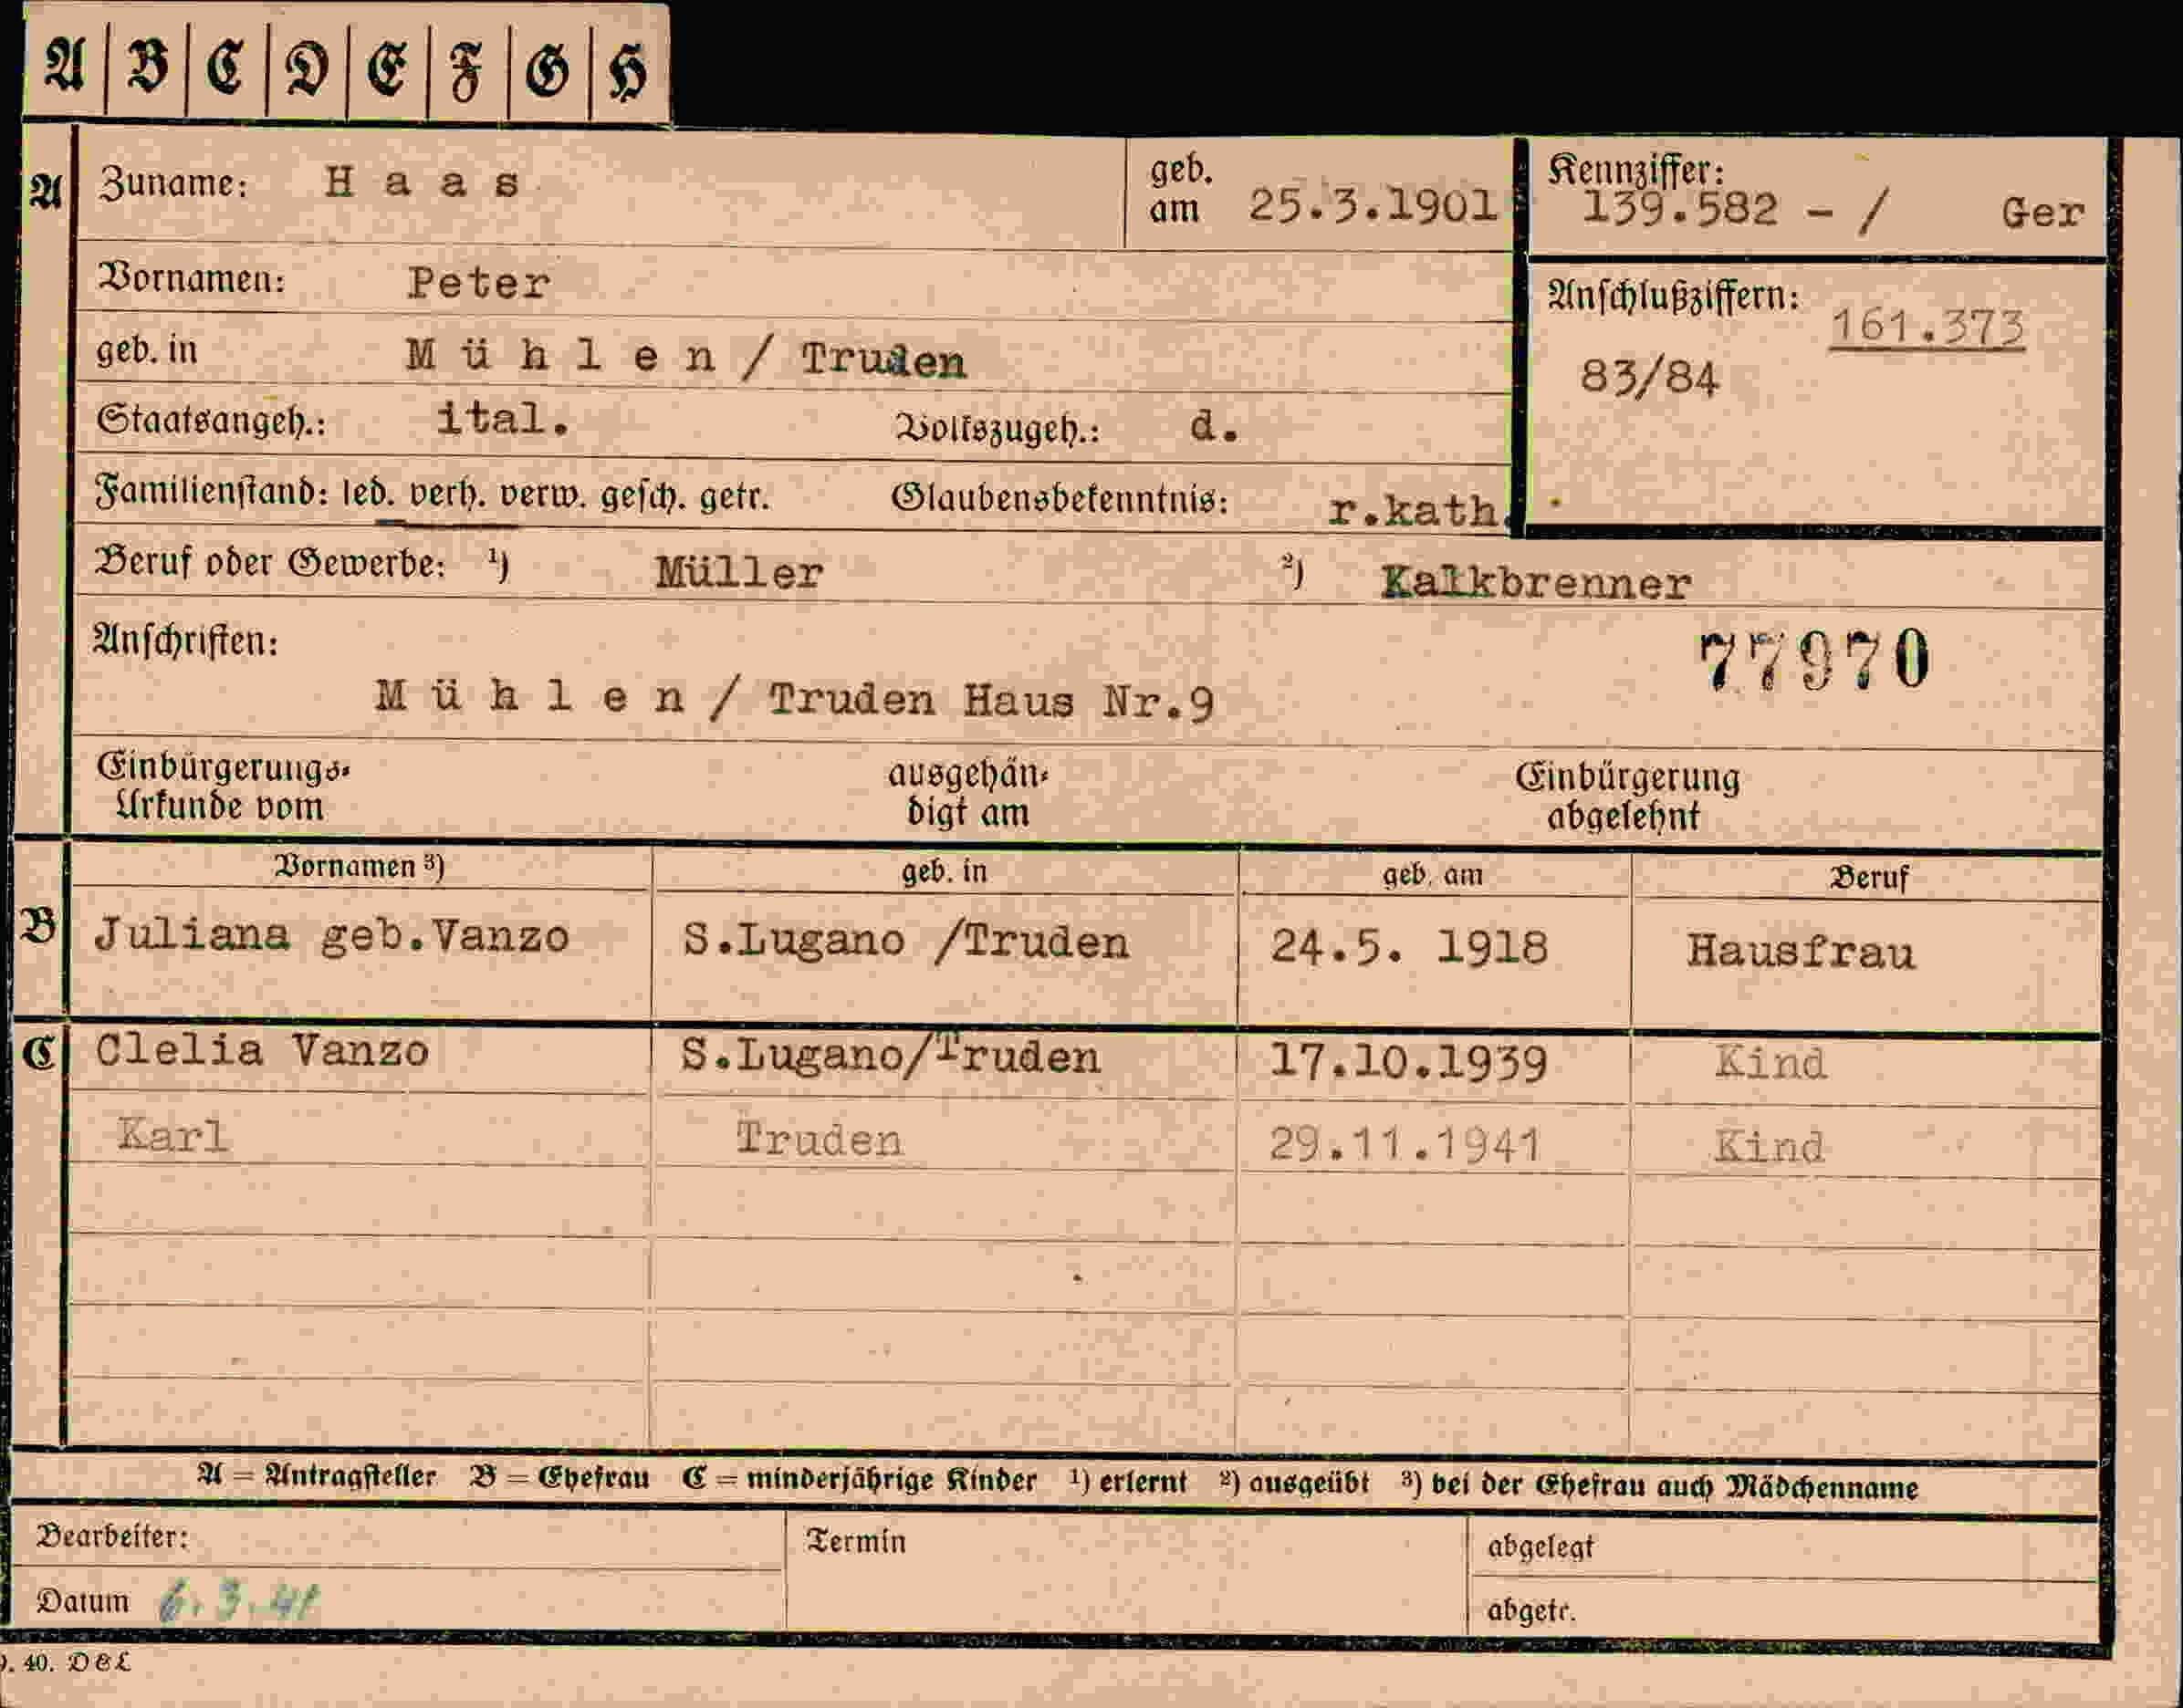 A B C D E F G H
A Zuname: Haas geb. am 25.3.1901 Kennziffer: 139.582 - / Ger
Vornamen: Peter
Anschlußziffern: 161.373
83/84
geb. in Mühlen / Truden
Staatsangeh.: ital. Volkszugeh.: d.
Familienstand: led. verh. verw. gesch. getr. Glaubensbekenntnis: r.kath.
Beruf oder Gewerbe: 1) Müller 2) Kalkbrenner
Anschriften:
77970
Mühlen / Truden Haus Nr.9
Einbürgerungs-Urkunde vom ausgehän-digt am Einbürgerung abgelehnt
Vornamen 3) geb. in geb. am Beruf
B Juliana geb.Vanzo S.Lugano /Truden 24.5. 1918 Hausfrau
C Clelia Vanzo S.Lugano/Truden 17.10.1939 Kind
Karl Truden 29.11.1941 Kind
A = Antragsteller B = Ehefrau C = minderjährige Kinder 1) erlernt 2) ausgeübt 3) bei der Ehefrau auch Mädchenname
Bearbeiter: Termin abgelegt
Datum 6.3.41 abgetr.
40. DEL